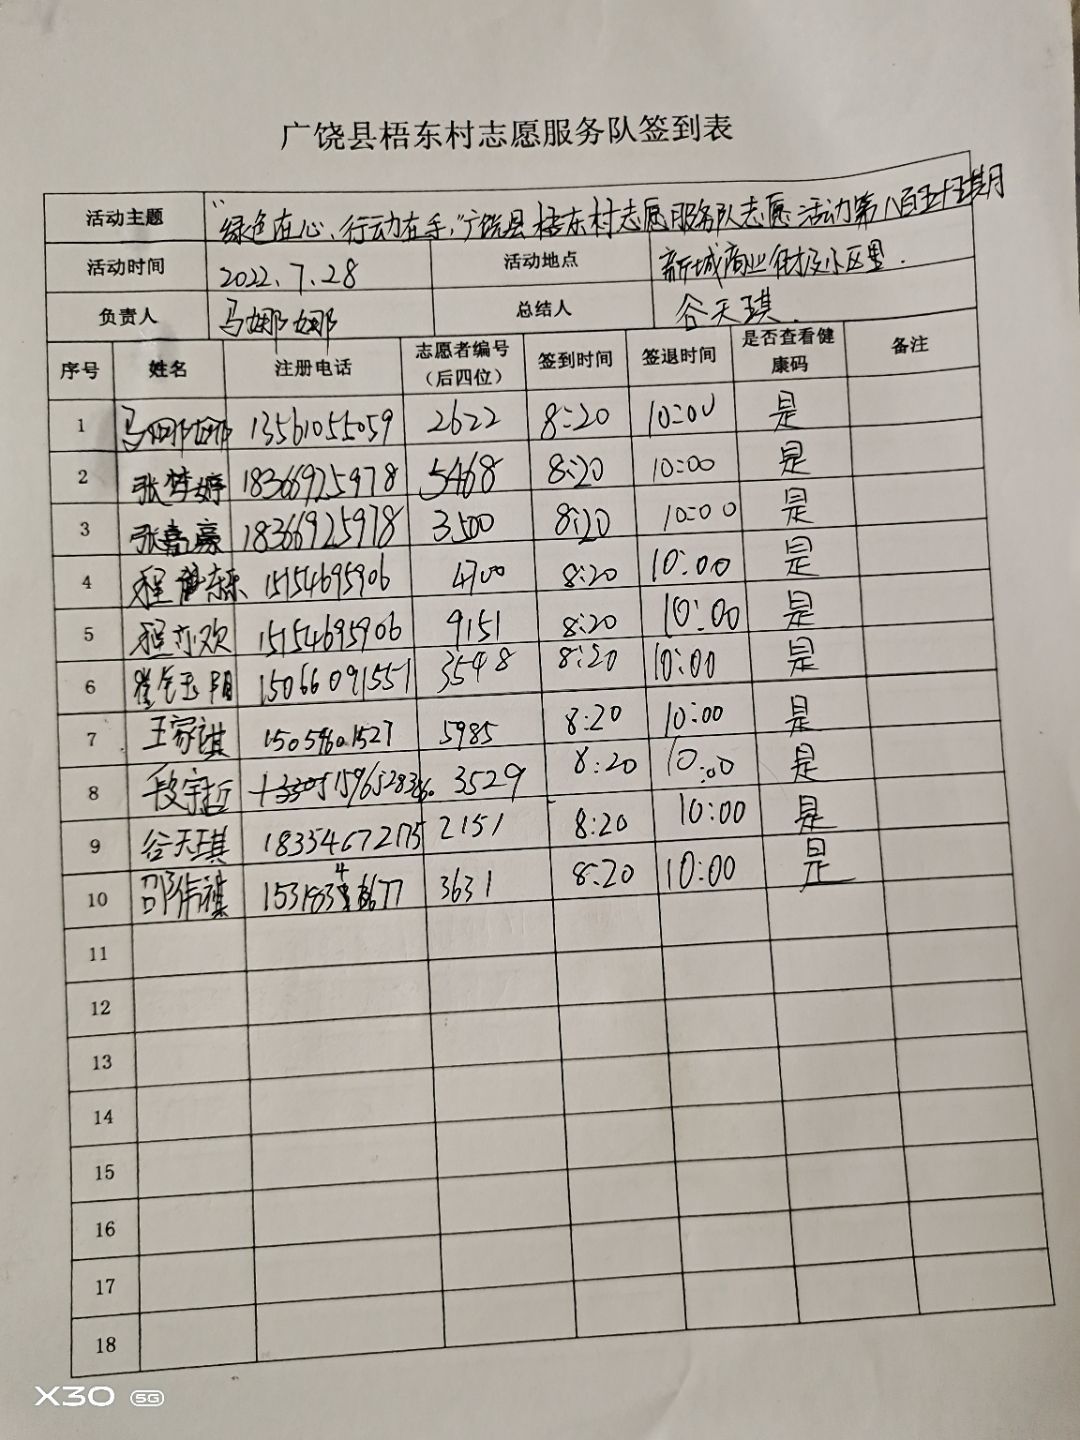 广饶县梧东村志愿服务队签到表
活动主题 "绿色在心、行动在手,"广饶县梧东村志愿服务队志愿活动第八百五十
活动时间 2022.7.28 活动地点 新城商业街及小区里.
负责人 马娜娜 总结人 谷天琪.
序号 姓名 注册电话 志愿者编号（后四位） 签到时间 签退时间 是否查看健康码 备注
1 马娜娜 13561055059 2622 8:20 10:00 是
2 张梦婷 18366925978 5468 8:20 10:00 是
3 张嘉豪 18366925978 3500 8:20 10:00 是
4 程 乐 15154695906 4700 8:20 10:00 是
5 程亦欢 15154695906 9151 8:20 10:00 是
6 崔 阳 15066091551 3548 8:20 10:00 是
7 王家祺 15059601527 5985 8:20 10:00 是
8 段宇哲 3529 8:20 10:00 是
9 谷天琪 18354672175 2151 8:20 10:00 是
10 邵伟祺 3631 8:20 10:00 是
11
12
13
14
15
16
17
18
X30 5G